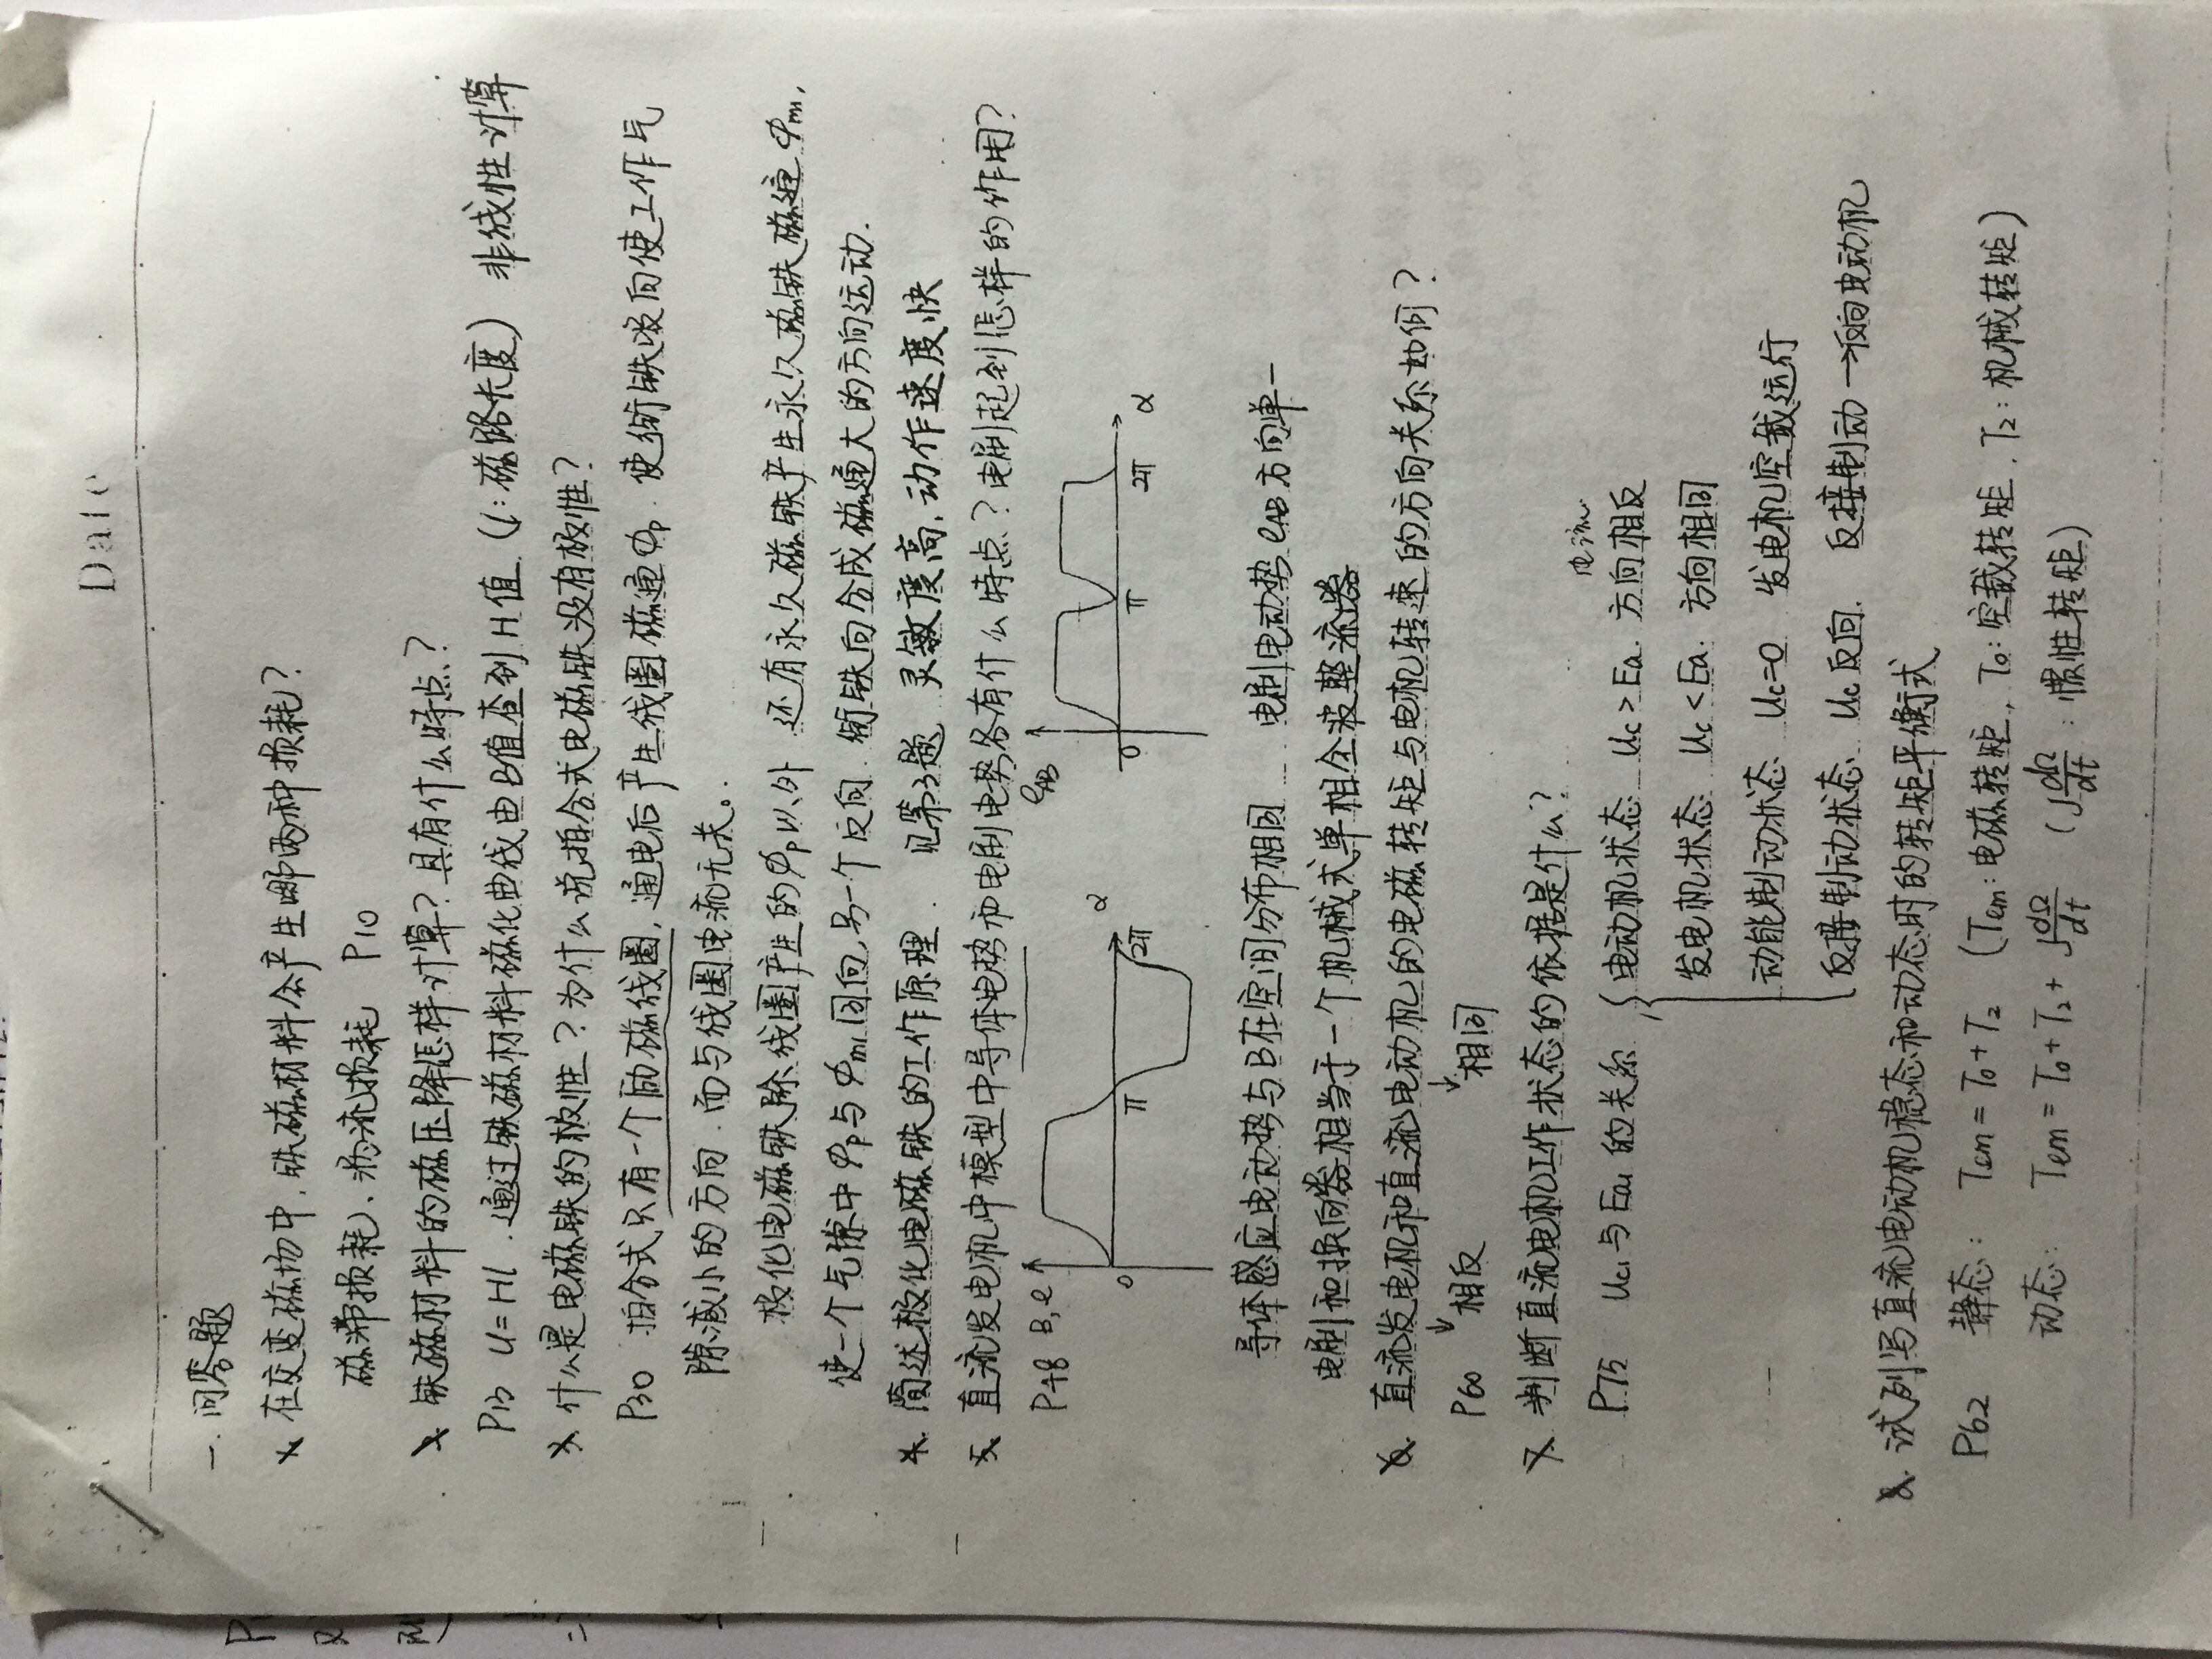 Date
一. 问答题
1. 在交变磁场中,铁磁材料会产生哪两种损耗?
磁滞损耗、涡流损耗 P10
2. 铁磁材料的磁压降怎样计算?具有什么特点?
P13 U=Hl . 通过铁磁材料磁化曲线由B值查到H值 (l:磁路长度) 非线性计算
3. 什么是电磁铁的极性?为什么说拍合式电磁铁没有极性?
P30 拍合式只有一个励磁线圈,通电后产生线圈磁通Φp 使衔铁吸向使工作气
隙减小的方向.而与线圈电流无关。
极化电磁铁除线圈产生的Φp以外 还有永久磁铁产生永久磁铁磁通Φm,
使一个气隙中Φp与Φm1同向,另一个反向.衔铁向合成磁通大的方向运动.
4. 简述极化电磁铁的工作原理. 见第3题 灵敏度高,动作速度快
5. 直流发电机中模型中导体电势和电刷电势各有什么特点?电刷起到怎样的作用?
P48 B,e α 0 π 2π eAB 0 π 2π α
导体感应电动势与B在空间分布相同 电刷电动势eAB方向单一
电刷和换向器相当于一个机械式单相全波整流器
6. 直流发电机和直流电动机的电磁转矩与电机转速的方向关系如何?
P60 ↓相反 ↓相同
7. 判断直流电机工作状态的依据是什么?
电流
P75 Uc1与Ea1的关系 { 电动机状态 Uc>Ea. 方向相反
发电机状态 Uc<Ea. 方向相同
动能制动状态 Uc=0 发电机空载运行
反接制动状态 Uc反向. 反接制动→反向电动机
8. 试列写直流电动机稳态和动态时的转矩平衡式
P62 静态: Tem=T0+T2 (Tem:电磁转矩, T0:空载转矩, T2:机械转矩)
动态: Tem=T0+T2+J dΩ/dt (J dΩ/dt:惯性转矩)